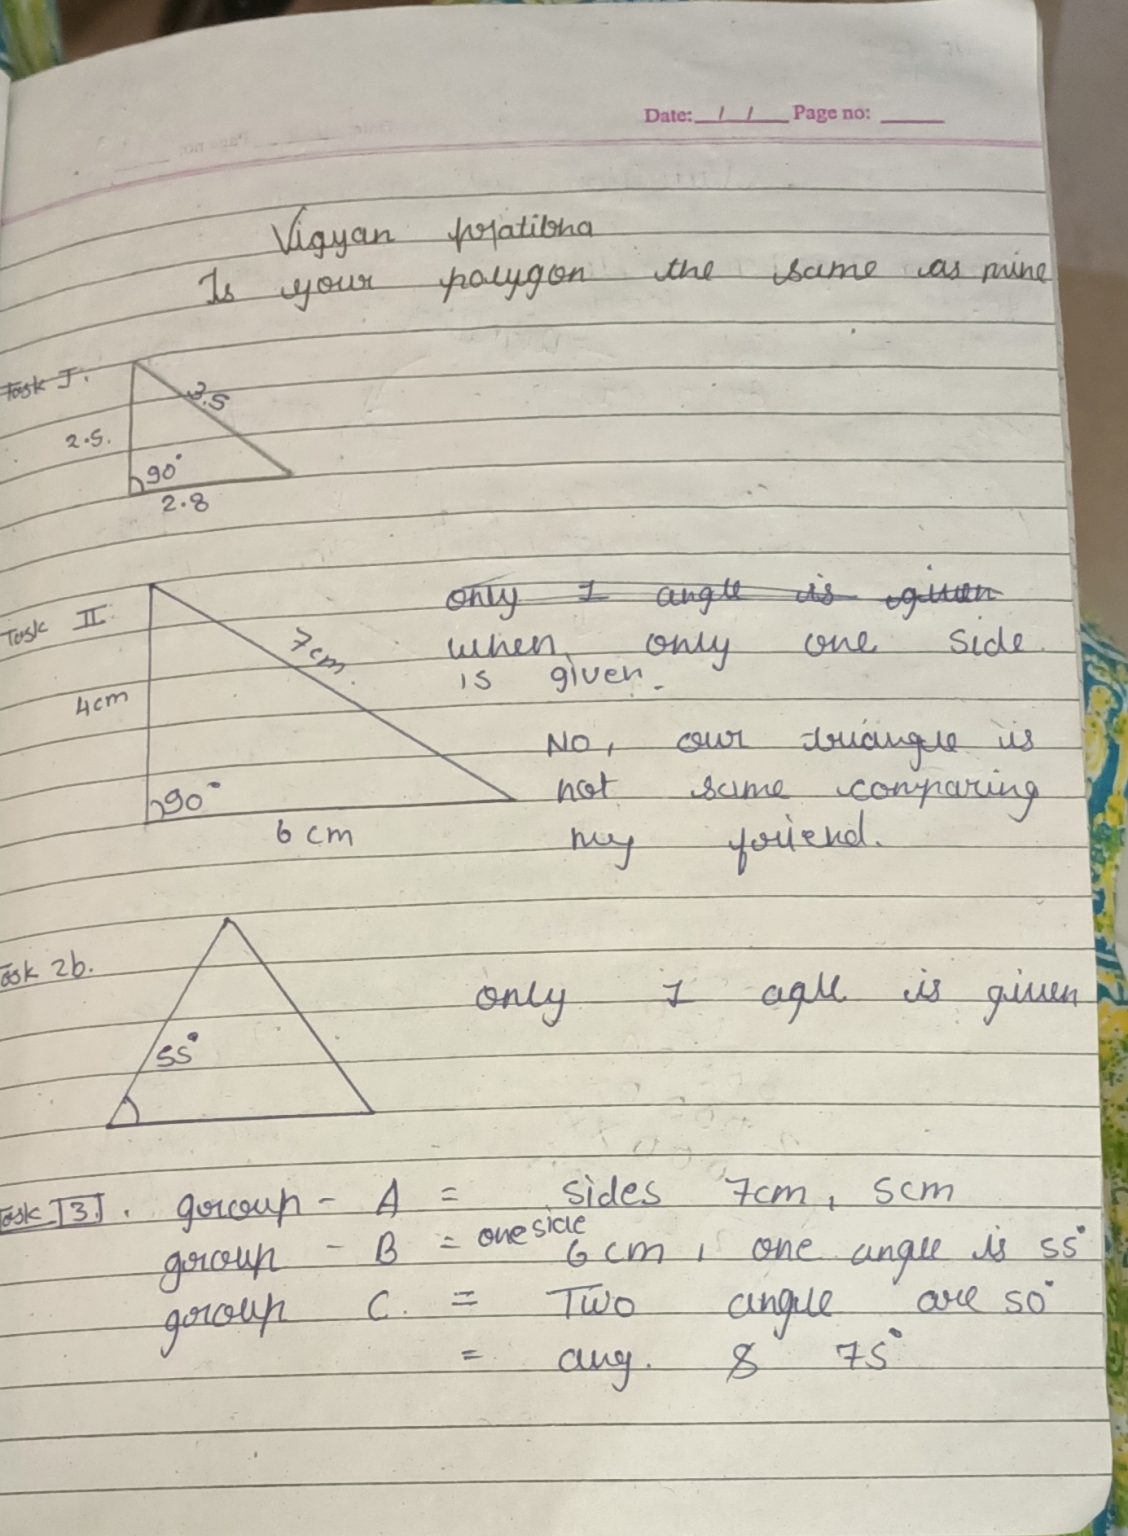 Date: / / Page no:
Vigyan pratibha
Is your polygon the same as mine
Task I.
3.5
2.5.
90°
2.8
Task II.
only 1 angle is given
when only one side
is given.
7cm.
4cm
No, our triangle is
not same comparing
my friend.
90°
6 cm
Task 2b.
only 1 agle is given
55°
Task 3. group - A = sides 7cm, 5cm
group - B = one side 6cm, one angle is 55°
group C. = Two angle are 50°
= ang. & 75°